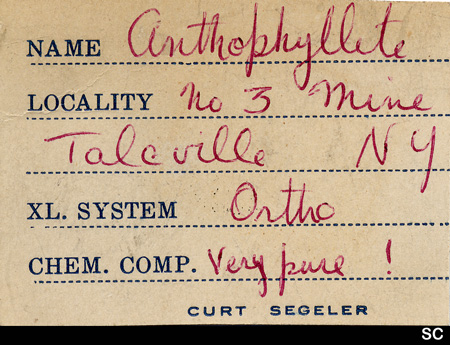 NAME Anthophyllete
LOCALITY No 3 Mine
Talcville NY
XL. SYSTEM Ortho
CHEM. COMP. Very pure !
CURT SEGELER
SC